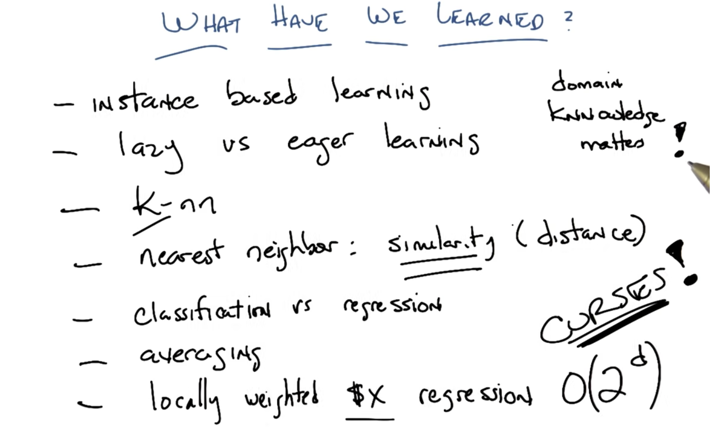 WHAT HAVE WE LEARNED?
- instance based learning
- lazy vs eager learning
- K-nn
- nearest neighbor: similarity (distance)
- classification vs regression
- averaging
- locally weighted $X regression
domain
knnowledge
matters!
CURSES!
O(2^d)